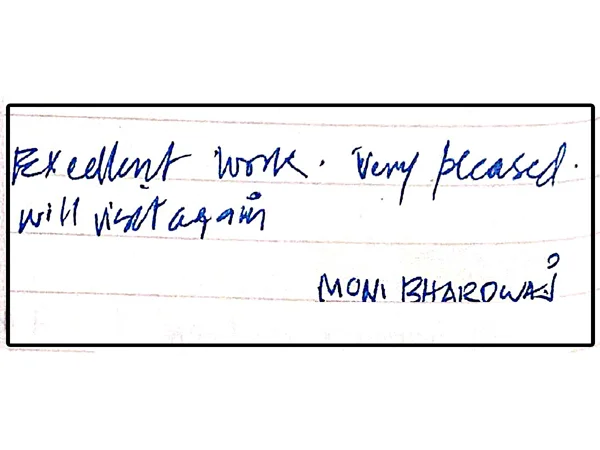 Excellent work. Very pleased.
will visit again
MONI BHARDWAJ